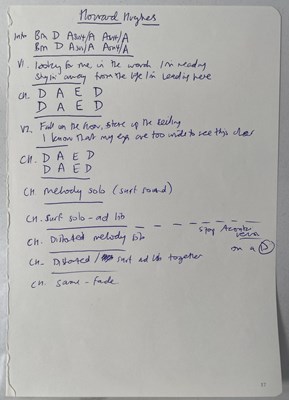 Howard Hughes
Intro Bm D Asus4/A Asus4/A
Bm D Asus4/A Asus4/A
V1. Looking for me in the words I'm reading
Shyin away from the life I'm leading here
CH. D A E D
D A E D
V2. Fall on the floor, stare up the ceiling
I know that my eyes are too wide to see this clear
CH. D A E D
D A E D
CH. melody solo (surf sound)
CH. surf solo - ad lib
Stop Acoustic
CH. Distorted melody solo
on a D
CH. Distorted / surf ad libs together
CH. same - fade